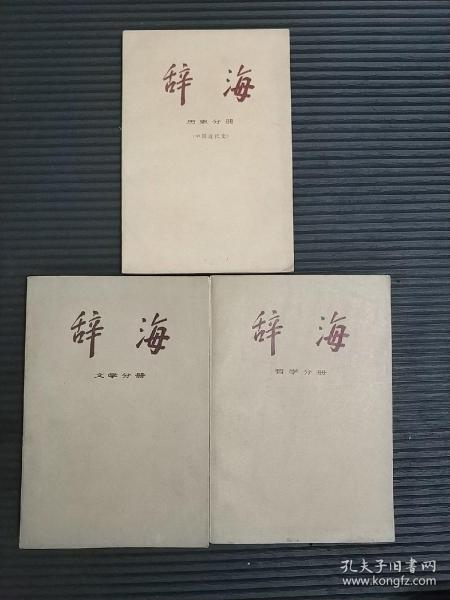 辞海
历史分册
(中国近代史)
辞海
文学分册
辞海
哲学分册
孔夫子旧书网
www.kongfz.com